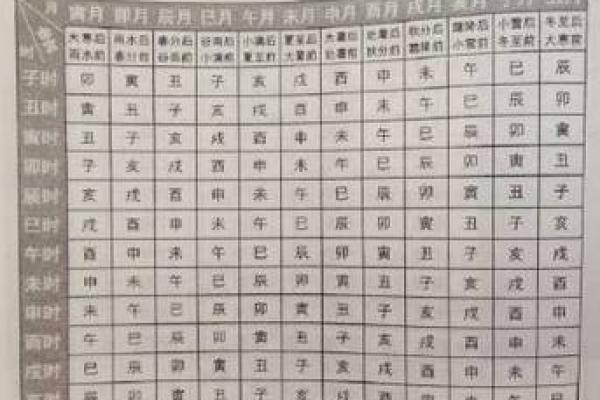 月 寅月 卯月 辰月 巳月 午月 未月 申月 酉月 戌月 亥月
时 大寒后 雨水后 春分后 谷雨后 小满后 夏至后 大暑后 处暑后 秋分后 霜降后 小雪后 冬至后
雨水前 春分前 谷雨前 小满前 夏至前 大暑前 处暑前 秋分前 霜降前 小雪前 冬至前 大寒前
子时 卯 寅 丑 子 亥 戌 酉 申 未 午 巳 辰
丑时 寅 丑 子 亥 戌 酉 申 未 午 巳 辰 卯
寅时 丑 子 亥 戌 酉 申 未 午 巳 辰 卯 寅
卯时 子 亥 戌 酉 申 未 午 巳 辰 卯 寅 丑
辰时 亥 戌 酉 申 未 午 巳 辰 卯 寅 丑 子
巳时 戌 酉 申 未 午 巳 辰 卯 寅 丑 子 亥
午时 酉 申 未 午 巳 辰 卯 寅 丑 子 亥 戌
未时 申 未 午 巳 辰 卯 寅 丑 子 亥 戌 酉
申时 未 午 巳 辰 卯 寅 丑 子 亥 戌 酉 申
酉时 午 巳 辰 卯 寅 丑 子 亥 戌 酉 申 未
戌时 巳 辰 卯 寅 丑 子 亥 戌 酉 申 未 午
辰 卯 寅 丑 子 亥 戌 酉 申 未 午 巳